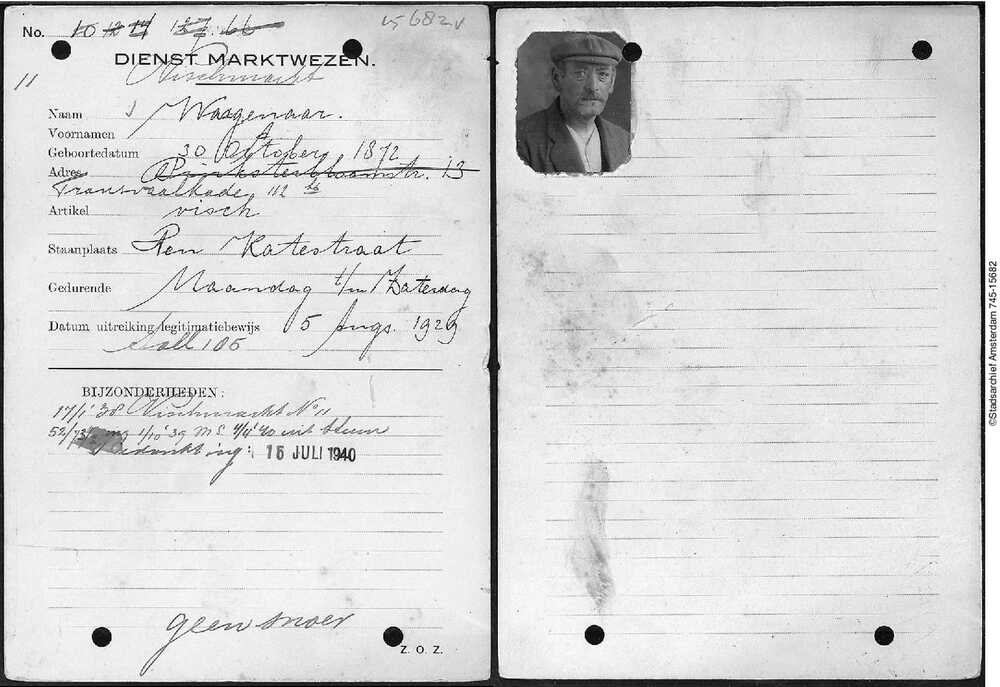 No. 10 12 14 137. 66 15682 v
DIENST MARKTWEZEN.
Vischmarkt
11
Naam Waagenaar.
Voornamen
Geboortedatum 30 October 1872
Adres Pinksterbloemstr. 13
Transvaalkade 112
Artikel visch
Staanplaats Ten Katestraat
Gedurende Maandag t/m Zaterdag
Datum uitreiking legitimatiebewijs 5 Augs. 1929
105
BIJZONDERHEDEN:
17/1 '38 Vischmarkt No 11
1/10 '39 M S. 4/4 '40 uit steun
16 JULI 1940
geen snoer
Z. O. Z.
©Stadsarchief Amsterdam 745-15682